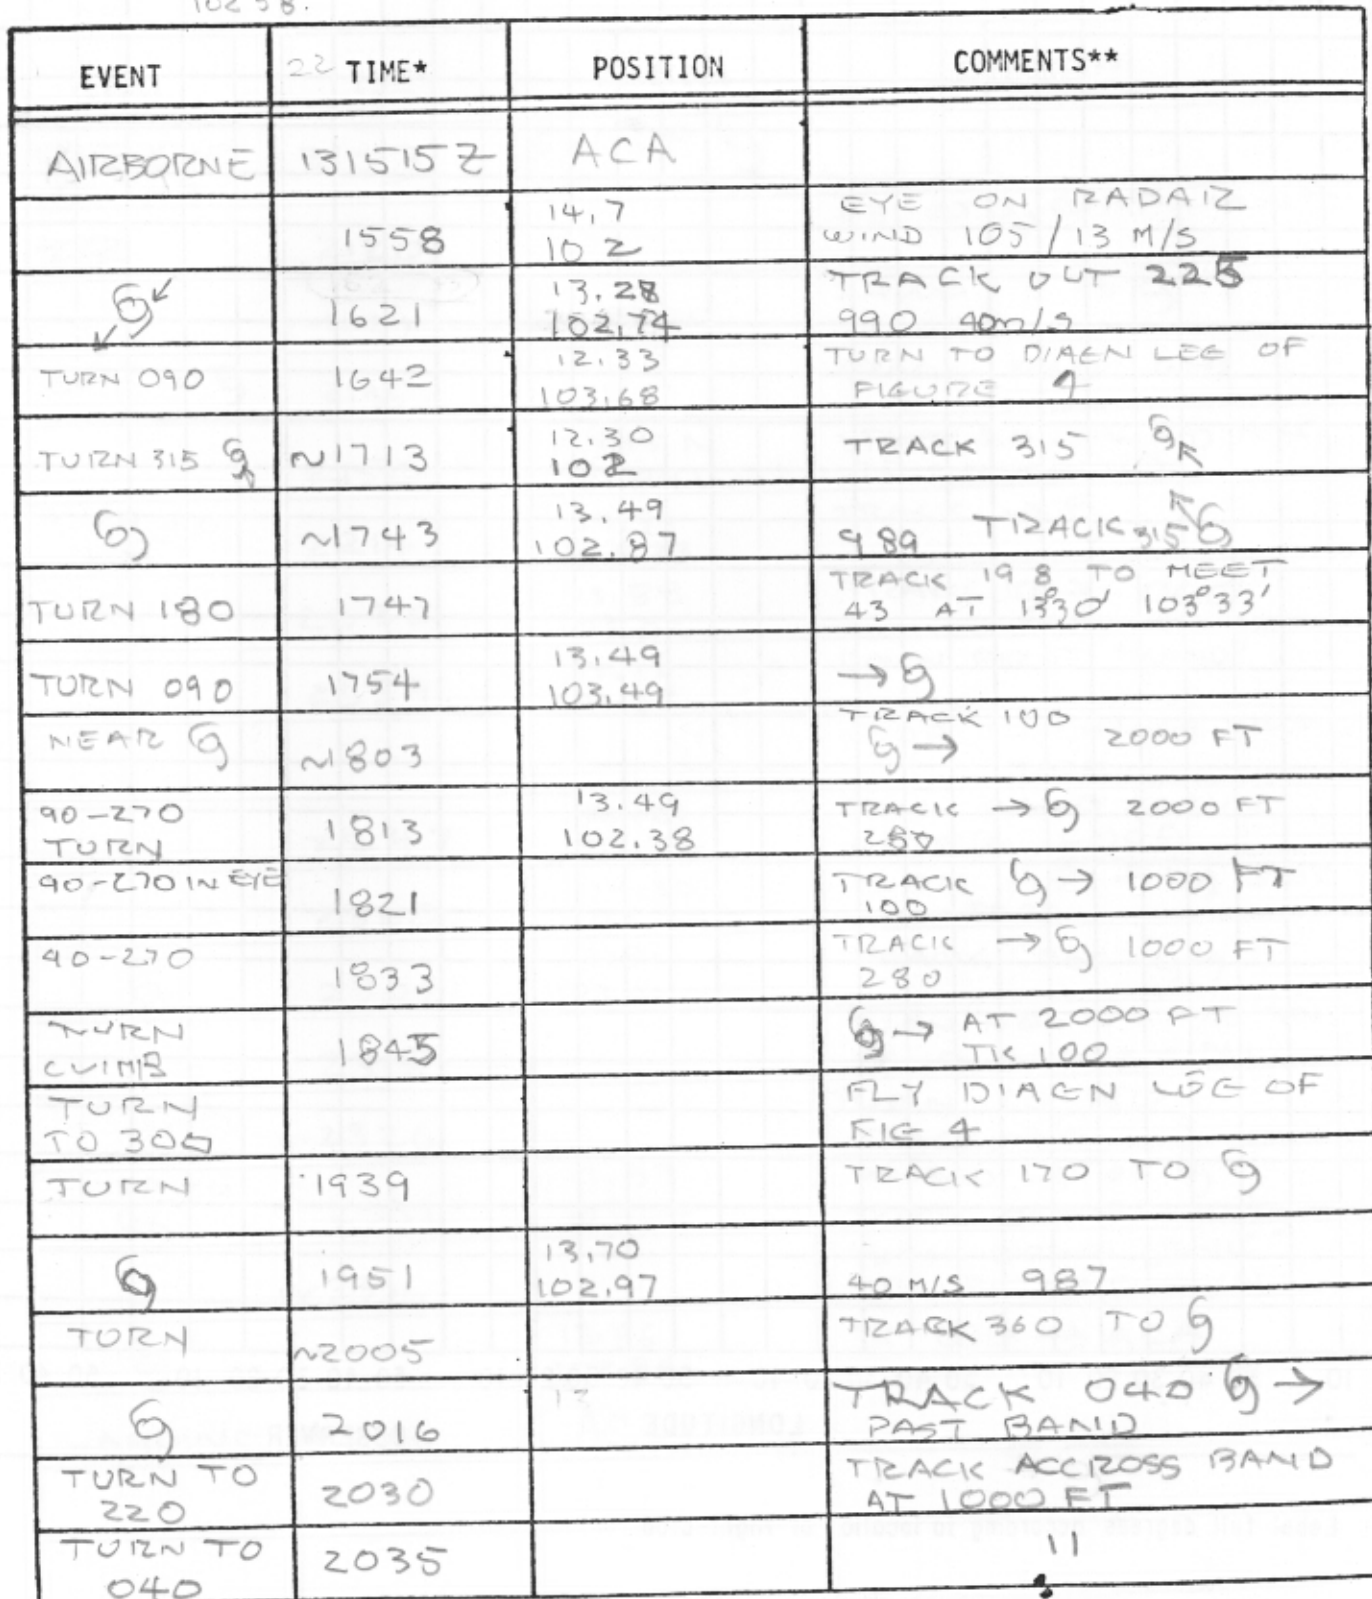 10258.
EVENT 22 TIME* POSITION COMMENTS**
AIRBORNE 131515Z ACA
1558 14.7 102 EYE ON RADAR
WIND 105/13 M/S
1621 13.28 102.74 TRACK OUT 225
990 40m/s
TURN 090 1642 12.33 103.68 TURN TO DIAGN LEG OF
FIGURE 4
TURN 315 ~1713 12.30 102 TRACK 315
~1743 13.49 102.87 989 TRACK 315
TURN 180 1747 TRACK 198 TO MEET
43 AT 13°30' 103°33'
TURN 090 1754 13.49 103.49 →
NEAR ~1803 TRACK 100
→ 2000 FT
90-270
TURN 1813 13.49 102.38 TRACK → 2000 FT
280
90-270 IN EYE 1821 TRACK → 1000 FT
100
90-270 1833 TRACK → 1000 FT
280
TURN
CLIMB 1845 → AT 2000 FT
TK 100
TURN
TO 300 FLY DIAGN LEG OF
FIG 4
TURN 1939 TRACK 170 TO
1951 13.70 102.97 40 M/S 987
TURN ~2005 TRACK 360 TO
2016 13 TRACK 040 →
PAST BAND
TURN TO
220 2030 TRACK ACCROSS BAND
AT 1000 FT
TURN TO
040 2035 11